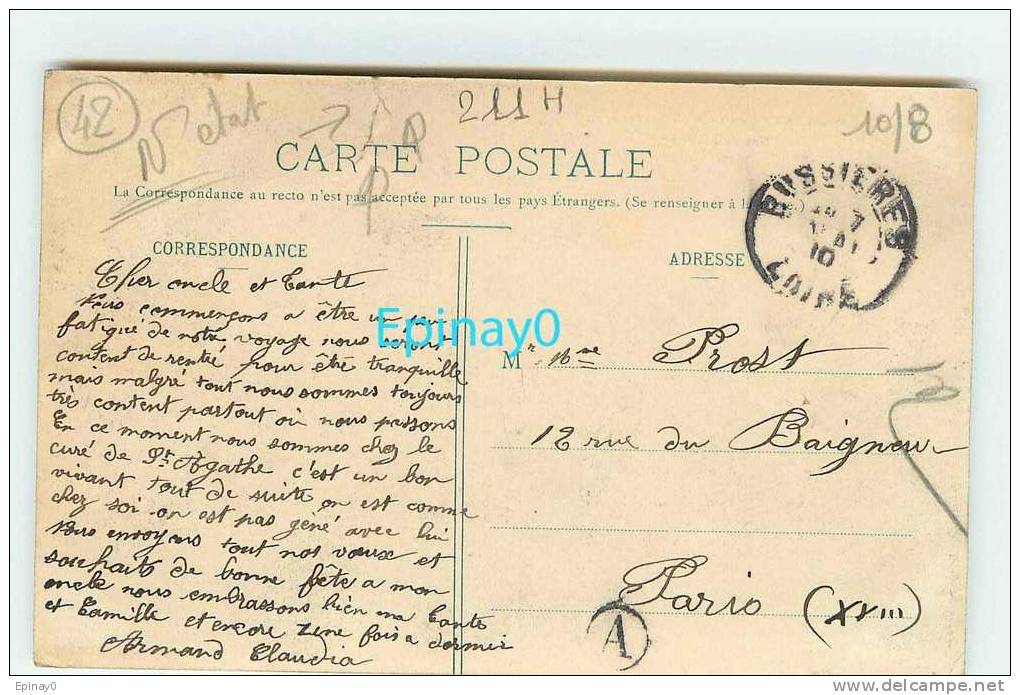 42
Nlle état
211H
10/8
CARTE POSTALE
La Correspondance au recto n'est pas acceptée par tous les pays Étrangers. (Se renseigner à la
BUSSIERES
LOIRE
CORRESPONDANCE
ADRESSE
Cher oncle et Tante
Nous commençons a être un peu
fatigué de notre voyage nous serons
content de rentré pour être tranquille
mais malgré tout nous sommes toujours
très content partout où nous passons
En ce moment nous sommes chez le
curé de St Agathe c'est un bon
vivant tout de suite on est comme
chez soi on est pas géné avec lui
Nous envoyons tout nos vœux et
souhaits de bonne fête a mon
oncle nous embrassons bien ma Tante
et Camille et encore zene fois a dormir
Armand Claudia
Epinay0
Mr Mme Prost
12 rue du Baigneur
Paris (XVIII)
A
Epinay0
www.delcampe.net